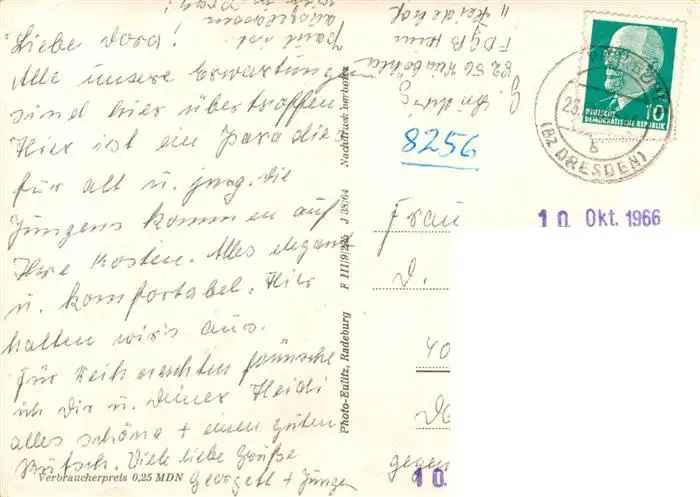 Liebe Dora!
Alle unsere Erwartungen
sind hier übertroffen.
Hier ist ein Paradies
für alt u. jung. die
Jungens kommen auf
Ihre Kosten. Alles elegant
u. komfortabel. Hier
halten wir's aus.
Für Weihnachten wünsche
ich Dir u. Deiner Heidi
alles schöne + einen guten
Rutsch. Viele liebe Grüße
Georgett + Jungen
Verbraucherpreis 0,25 MDN
Photo-Eulitz, Radeburg F III/9/245 J 38/64 Nachdruck verboten
FDGB Heim
Heidehof
8256
DEUTSCHE
DEMOKRATISCHE REPUBLIK
10
(BZ DRESDEN)
b
10. Okt. 1966
Frau
D.
40
gegen
10.